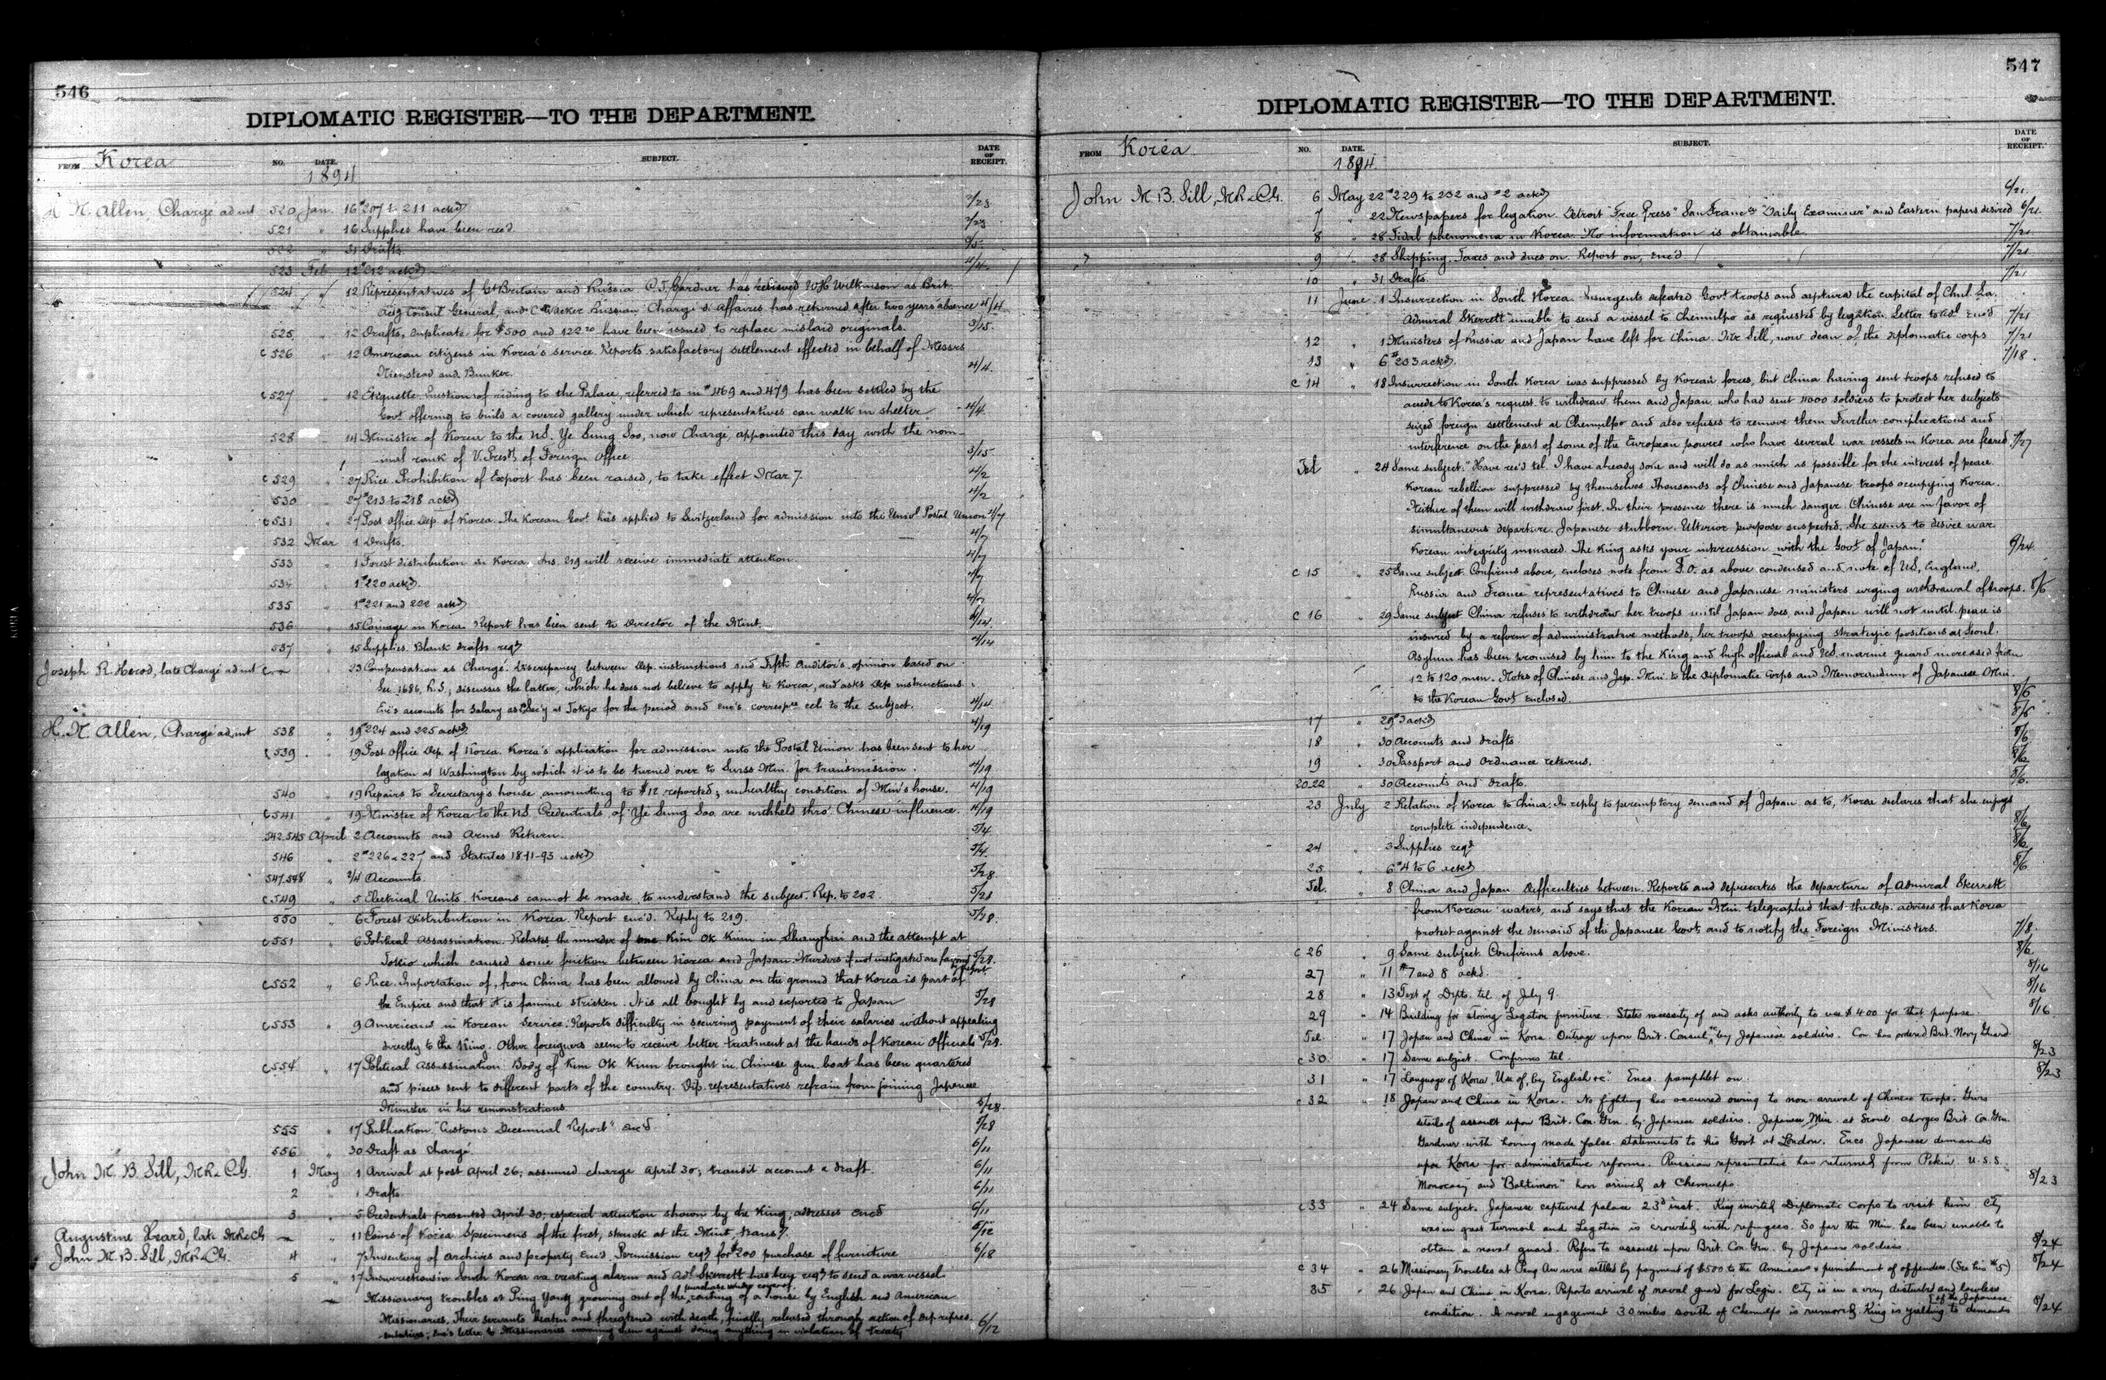 546
DIPLOMATIC REGISTER—TO THE DEPARTMENT.
FROM Korea NO. DATE. SUBJECT. DATE OF RECEIPT.
1894
H. N. Allen, Chargé ad int 520 Jan. 16 #207 to 211 ackd 2/23
521 " 16 Supplies have been rec'd. 2/23
522 " 31 Drafts.
523 Feb 12 #212 ackd
524 " 12 Representatives of Gt Britain and Russia C.T. Gardner has relieved W.H. Wilkinson as Brit.
Act'g Consul General, and C. Waeber Russian Chargé d'Affaires has returned after two years absence 4/4
525 " 12 Drafts, duplicate for $500 and 122.20 have been issued to replace mislaid originals. 3/15
C 526 " 12 American citizens in Korea's service. Reports satisfactory settlement effected in behalf of Messrs
Nienstead and Bunker. 4/4.
C 527 " 12 Etiquette. Question of riding to the Palace, referred to in #469 and 479 has been settled by the
Govt offering to build a covered gallery under which representatives can walk in shelter 4/4.
528 " 14 Minister of Korea to the U.S. Ye Sung Soo, now Chargé appointed this day with the nom-
inal rank of V. Prest. of Foreign Office. 3/15
C 529 " 27 Rice. Prohibition of Export has been raised, to take effect Mar 7. 4/2
530 " 27 #213 to 218 ackd 4/2
C 531 " 27 Post Office Dep. of Korea. The Korean Govt has applied to Switzerland for admission into the Univl Postal Union 4/7
532 Mar 1 Drafts. 4/7
533 " 1 Forest distribution in Korea. Ins. 219 will receive immediate attention. 4/7
534 " 1 #220 ackd. 4/7
535 " 1 #221 and 222 ackd 4/7
536 " 15 Coinage in Korea. Report has been sent to Director of the Mint. 4/14.
537 " 15 Supplies. Blank drafts reqd 4/14
Joseph R. Herod, late Chargé ad int C — " 23 Compensation as Chargé. Discrepancy between Dep. instructions and Fifth Auditor's opinion based on
Sec. 1686, R.S.; discusses the latter, which he does not believe to apply to Korea, and asks Dep instructions.
Enc's accounts for salary as Sec'y at Tokyo for the period and enc's corresp. rel. to the subject. 4/14
H. N. Allen, Chargé ad int 538 " 19 #224 and 225 ackd 4/19
C 539 " 19 Post Office Dep. of Korea. Korea's application for admission into the Postal Union has been sent to her
legation at Washington by which it is to be turned over to Swiss Min. for transmission. 4/19
540 " 19 Repairs to Secretary's house, amounting to $12 reported; unhealthy condition of Min's house. 4/19
C 541 " 19 Minister of Korea to the U.S. Credentials of Ye Sung Soo are withheld thro' Chinese influence. 4/19
542.545 April 2 Accounts and Arms Return. 5/4.
546 " 2 #226 & 227 and Statutes 1841-93 ackd 5/4.
547.548 " 2/4 Accounts. 5/28
C 549 " 5 Electrical Units. Koreans cannot be made to understand the subject. Rep. to 202. 5/28
550 " 6 Forest Distribution in Korea. Report enc'd. Reply to 219. 5/28.
C 551 " 6 Political Assassination. Relates the murder of Kim Ok Kiun in Shanghai and the attempt at
Tokio which caused some friction between Korea and Japan. Murders if not instigated are favored 5/28.
C 552 " 6 Rice. Importation of, from China has been allowed by China on the ground that Korea is part of
the Empire and that it is famine stricken. It is all bought by and exported to Japan 5/28
C 553 " 9 Americans in Korean Service. Reports difficulty in securing payment of their salaries without appealing
directly to the King. Other foreigners seem to receive better treatment at the hands of Korean Officials 5/28.
C 554 " 17 Political Assassination. Body of Kim Ok Kiun brought in Chinese gun boat has been quartered
and pieces sent to different parts of the country. Dip. representatives refrain from joining Japanese
Minister in his remonstrations. 5/28.
555 " 17 Publication "Customs Decennial Report" enc'd 5/28
556 " 30 Draft as Chargé. 6/11
John M. B. Sill, M.R. & C.G. 1 May 1 Arrival at post April 26; assumed charge April 30; transit account & draft. 6/11
2 " 1 Drafts 6/11
3 " 5 Credentials presented April 30; especial attention shown by the King, addresses enc'd 6/11
Augustine Heard, late M.R. & C.G. — " 11 Coins of Korea Specimens of the first, struck at the Mint, trans'd.
John M. B. Sill, M.R. & C.G. 4 " 7 Inventory of archives and property enc'd. Permission reqd for $200 purchase of furniture 6/18
5 " 17 Insurrection in South Korea are creating alarm and Adl Skerrett has been reqd to send a war vessel.
Missionary troubles at Ping Yang growing out of the purchase under cover of a house by English and American
Missionaries. Their servants beaten and threatened with death, finally released through action of Dip. repres-
entatives; enc's letter to Missionaries warning them against doing anything in violation of treaty 6/12
547
DIPLOMATIC REGISTER—TO THE DEPARTMENT.
FROM Korea NO. DATE. SUBJECT. DATE OF RECEIPT.
1894.
John M. B. Sill, M.R. & C.G. 6 May 22 #229 to 232 and #2 ackd 6/21.
7 " 22 Newspapers for legation. Detroit "Free Press" San Franco "Daily Examiner" and Eastern papers desired 6/21.
8 " 28 Tidal phenomena in Korea. No information is obtainable. 7/21
9 " 28 Shipping. Taxes and dues on. Report on, enc'd 7/21
10 " 31 Drafts. 7/21
11 June 1 Insurrection in South Korea. Insurgents defeated Govt troops and captured the capital of Chul La.
Admiral Skerrett unable to send a vessel to Chemulpo as requested by legation. Letter to Adl enc'd 7/21
12 " 1 Ministers of Russia and Japan have left for China. Mr Sill, now dean of the diplomatic corps 7/21
13 " 6 #233 ackd. 7/18.
C 14 " 18 Insurrection in South Korea was suppressed by Korean forces, but China having sent troops refused to
accede to Korea's request to withdraw them and Japan who had sent 4000 soldiers to protect her subjects
seized foreign settlement at Chemulpo and also refuses to remove them. Further complications and
interference on the part of some of the European powers who have several war vessels in Korea are feared. 7/27
Tel " 24 Same subject. "Have rec'd tel. I have already done and will do as much as possible for the interest of peace.
Korean rebellion suppressed by themselves. Thousands of Chinese and Japanese troops occupying Korea.
Neither of them will withdraw first. In their presence there is much danger. Chinese are in favor of
simultaneous departure. Japanese stubborn. Ulterior purpose suspected. She seems to desire war.
Korean integrity menaced. The King asks your intercession with the Govt of Japan." 6/24.
C 15 " 25 Same subject. Confirms above, encloses note from F.O. as above condensed and note of U.S., England,
Russia and France representatives to Chinese and Japanese ministers urging withdrawal of troops. 8/6
C 16 " 29 Same subject. China refuses to withdraw her troops until Japan does, and Japan will not until peace is
insured by a reform of administrative methods, her troops occupying strategic positions at Seoul.
Asylum has been promised by him to the King and high official and U.S. marine guard increased from
12 to 120 men. Notes of Chinese and Jap. Min. to the Diplomatic Corps and Memorandum of Japanese Min.
to the Korean Govt enclosed. 8/6
17 " 29 #3 ackd 8/6
18 " 30 Accounts and drafts 8/6
19 " 30 Passport and Ordnance returns. 8/6
20.22 " 30 Accounts and drafts. 8/6.
23 July 2 Relation of Korea to China. In reply to peremptory demand of Japan as to, Korea declares that she enjoys
complete independence. 8/6
24 " 3 Supplies reqd 8/6
25 " 6 #4 to 6 ackd 8/6
Tel. " 8 China and Japan. Difficulties between. Reports and deprecates the departure of Admiral Skerrett
from Korean waters, and says that the Korean Min. telegraphed that the Dep. advises that Korea
protest against the demand of the Japanese Govt and to notify the Foreign Ministers. 7/8.
C 26 " 9 Same subject. Confirms above. 8/6.
27 " 11 #7 and 8 ackd. 8/16
28 " 13 Text of Dept's. tel. of July 9. 8/16
29 " 14 Building for storing Legation furniture. States necessity of and asks authority to use $400 for that purpose. 8/16
Tel " 17 Japan and China in Korea. Outrage upon Brit. Consul by Japanese soldiers. Con. has ordered Brit. Navy Guard
C 30 " 17 Same subject. Confirms tel. 8/23
31 " 17 Language of Korea, Use of, by English &c. Encs. pamphlet on 8/23
C 32 " 18 Japan and China in Korea. No fighting has occurred owing to non-arrival of Chinese troops. Gives
details of assault upon Brit. Con. Gen. by Japanese soldiers. Japanese Min. at Seoul charges Brit. Con. Gen.
Gardner with having made false statements to his Govt at London. Encs Japanese demands
upon Korea for administrative reforms. Russian representative has returned from Pekin. U.S.S.
"Monocacy" and "Baltimore" have arrived at Chemulpo. 8/23
C 33 " 24 Same subject. Japanese captured palace 23d inst. King invited Diplomatic Corps to visit him. City
was in great turmoil and Legation is crowded with refugees. So far the Min. has been unable to
obtain a naval guard. Refers to assault upon Brit. Con. Gen. by Japanese soldiers. 8/24
C 34 " 26 Missionary Troubles at Ping An were settled by payment of $500 to the Americans & punishment of offenders. (See his #5) 8/24
35 " 26 Japan and China in Korea. Reports arrival of naval guard for Legn. City is in a very disturbed and lawless
condition. A naval engagement 30 miles south of Chemulpo is rumored. King is yielding to demands of the Japanese 8/24